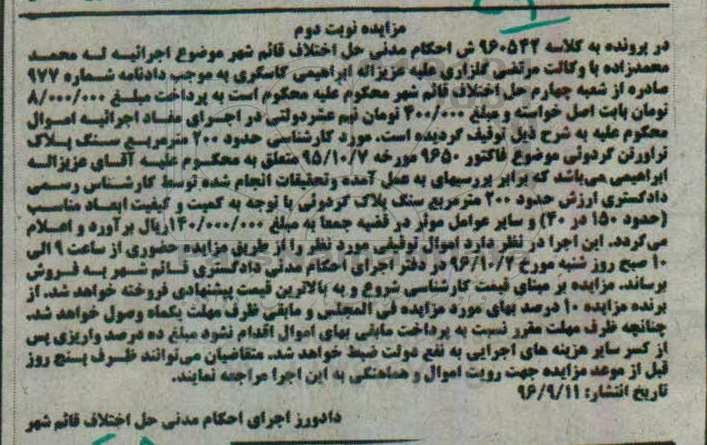 مزایده نوبت دوم
در پرونده به کلاسه ۹۶۰۵۴۲ ش احکام مدنی حل اختلاف قائم شهر موضوع اجرائیه له محمد
محمدزاده با وکالت مرتضی گلزاری علیه عزیزاله ابراهیمی گاسگری به موجب دادنامه شماره ۹۷۷
صادره از شعبه چهارم حل اختلاف قائم شهر محکوم علیه محکوم است به پرداخت مبلغ ۸/۰۰۰/۰۰۰
تومان بابت اصل خواسته و مبلغ ۴۰۰/۰۰۰ تومان نیم عشردولتی در اجرای مفاد اجرائیه اموال
محکوم علیه به شرح ذیل توقیف گردیده است. مورد کارشناسی حدود ۲۰۰ مترمربع سنگ پلاک
تراورتن گردوئی موضوع فاکتور ۹۶۵۰ مورخه ۹۵/۱۰/۷ متعلق به محکوم علیه آقای عزیزاله
ابراهیمی می‌باشد که برابر بررسیهای به عمل آمده وتحقیقات انجام شده توسط کارشناس رسمی
دادگستری ارزش حدود ۲۰۰ مترمربع سنگ پلاک گردوئی با توجه به کمیت و کیفیت ابعاد مناسب
(حدود ۱۵۰ در ۴۰) و سایر عوامل موثر در قضیه جمعا به مبلغ ۱۴۰/۰۰۰/۰۰۰ریال برآورد و اعلام
می‌گردد. این اجرا در نظر دارد اموال توقیفی مورد نظر را از طریق مزایده حضوری از ساعت ۹ الی
۱۰ صبح روز شنبه مورخ ۹۶/۱۰/۲ در دفتر اجرای احکام مدنی دادگستری قائم شهر به فروش
برساند. مزایده بر مبنای قیمت کارشناسی شروع و به بالاترین قیمت پیشنهادی فروخته خواهد شد. از
برنده مزایده ۱۰ درصد بهای مورد مزایده فی المجلس و مابقی ظرف مهلت یکماه وصول خواهد شد.
چنانچه ظرف مهلت مقرر نسبت به پرداخت مابقی بهای اموال اقدام نشود مبلغ ده درصد واریزی پس
از کسر سایر هزینه های اجرایی به نفع دولت ضبط خواهد شد. متقاضیان می‌توانند ظرف پنج روز
قبل از موعد مزایده جهت رویت اموال و هماهنگی به این اجرا مراجعه نمایند.
تاریخ انتشار: ۹۶/۹/۱۱
دادورز اجرای احکام مدنی حل اختلاف قائم شهر